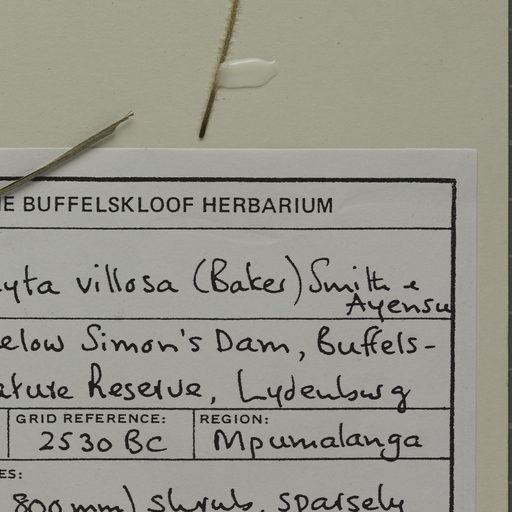 BUFFELSKLOOF HERBARIUM
villosa (Baker) Smith &
Ayensu
Simon's Dam, Buffels-
Reserve, Lydenburg
GRID REFERENCE: REGION:
2530 BC Mpumalanga
800mm) shrub, sparsely